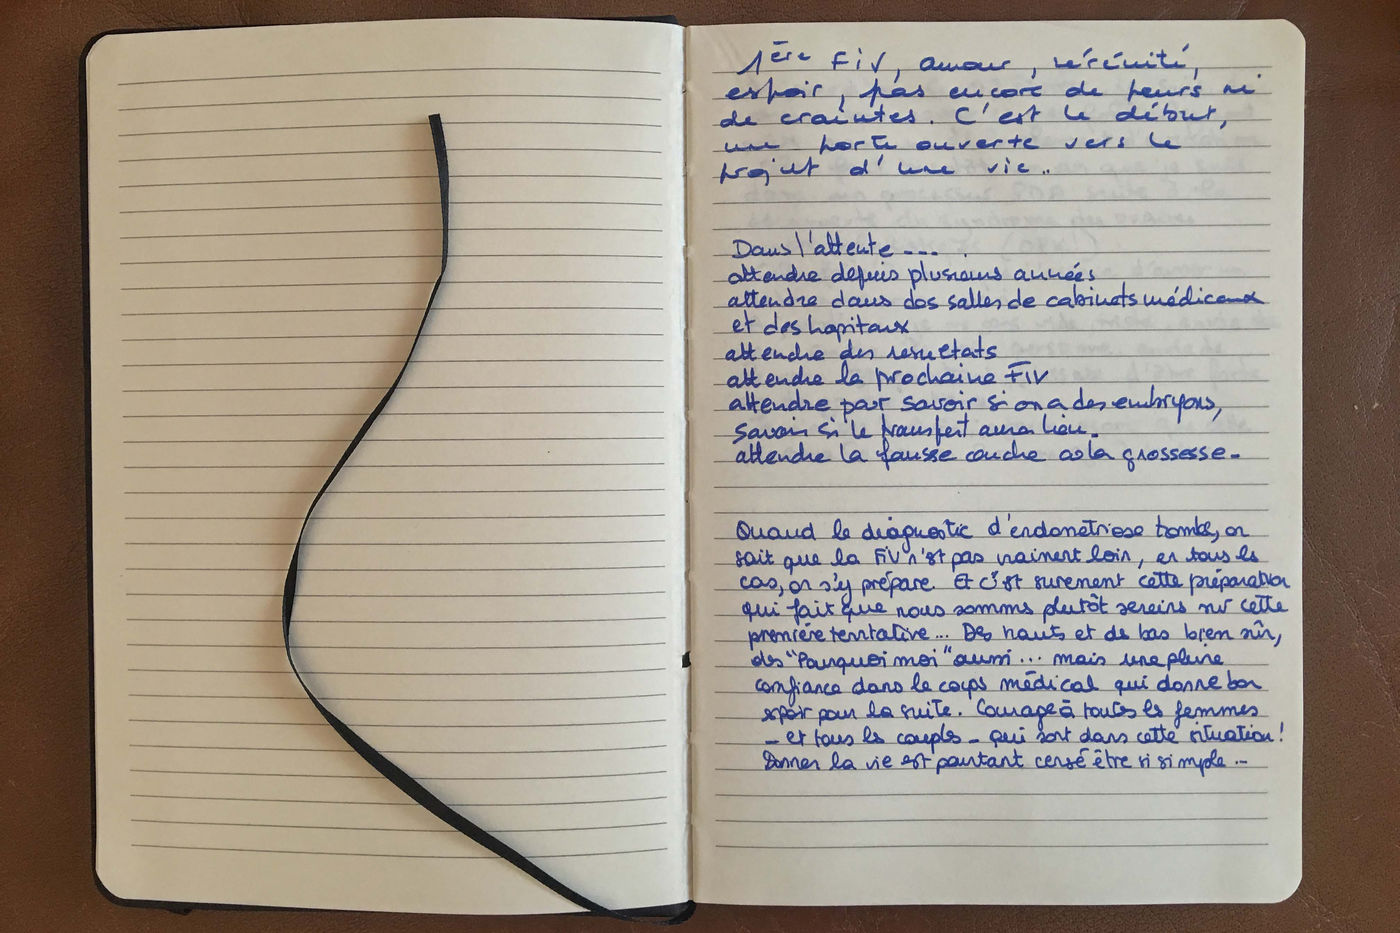 1ère FIV, amour, sérénité,
espoir, pas encore de peurs ni
de craintes. C'est le début,
une porte ouverte vers le
projet d'une vie..
Dans l'attente ---
attendre depuis plusieurs années
attendre dans des salles de cabinets médicaux
et des hopitaux
attendre des resultats
attendre la prochaine FIV
attendre pour savoir si on a des embryons,
savoir si le transfert aura lieu.
attendre la fausse couche ou la grossesse.
Quand le diagnostic d'endométriose tombe, on
sait que la FIV n'est pas vraiment loin, en tous les
cas, on s'y prépare. Et c'est surement cette préparation
qui fait que nous sommes plutôt sereins sur cette
première tentative... Des hauts et de bas bien sûr,
des "Pourquoi moi" aussi... mais une pleine
confiance dans le corps médical qui donne bon
espoir pour la suite. Courage à toutes les femmes
- et tous les couples - qui sont dans cette situation!
Donner la vie est pourtant censé être si simple...